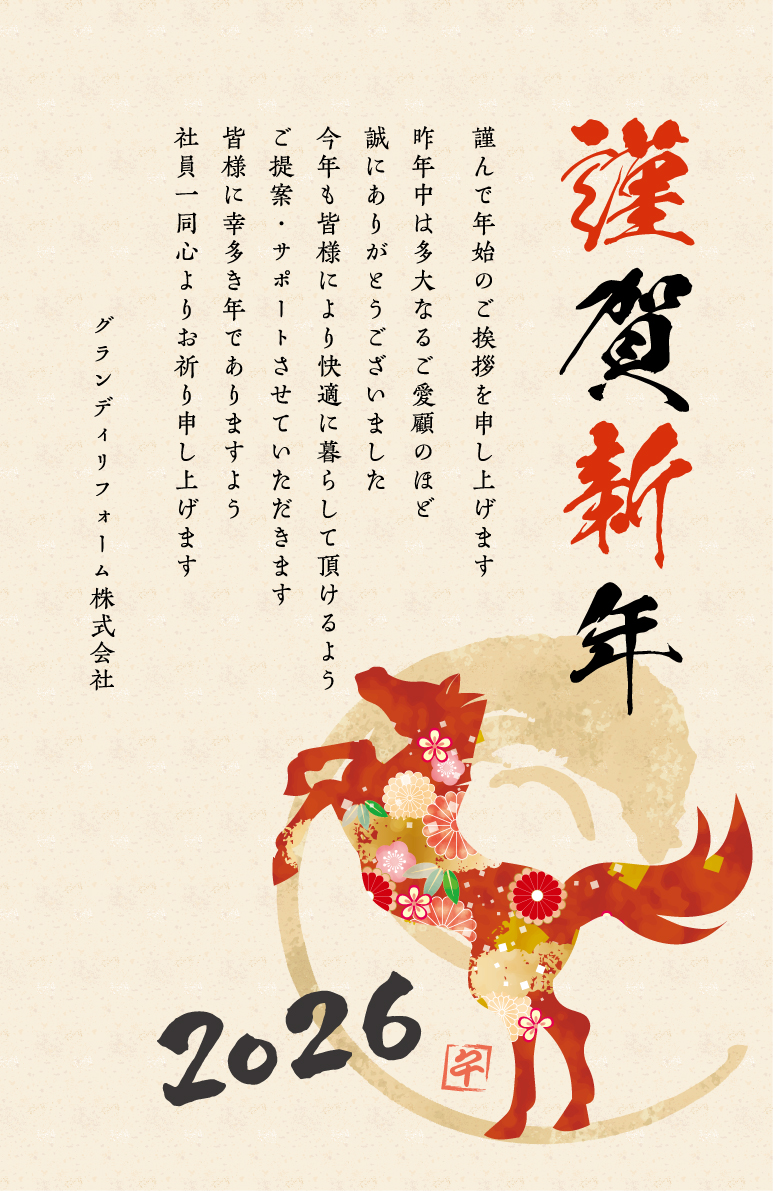 謹賀新年
謹んで年始のご挨拶を申し上げます
昨年中は多大なるご愛顧のほど
誠にありがとうございました
今年も皆様により快適に暮らして頂けるよう
ご提案・サポートさせていただきます
皆様に幸多き年でありますよう
社員一同心よりお祈り申し上げます
グランディリフォーム株式会社
2026
午